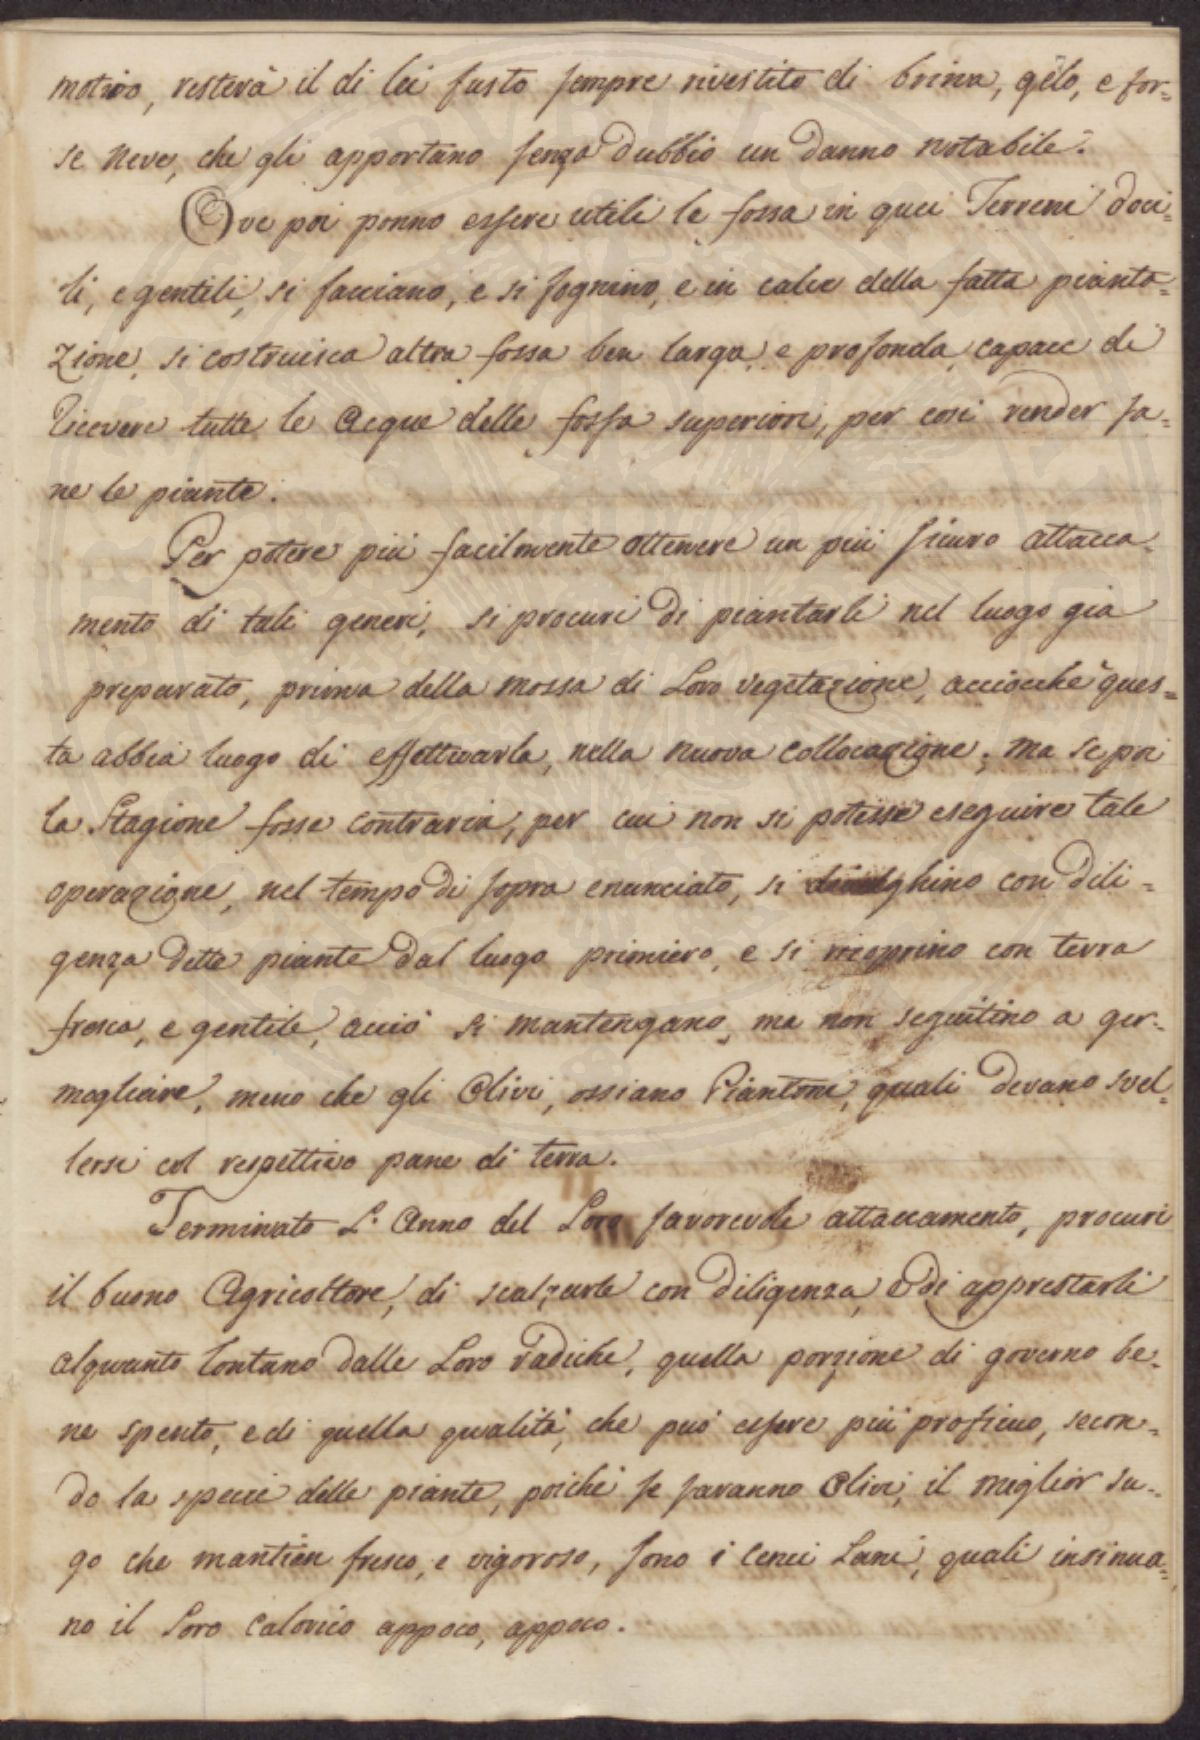 motivo, resterà il di lei fusto sempre rivestito di brina, gelo, e for=
se neve, che gli apportano senza dubbio un danno notabile.
Ove poi ponno essere utili le fossa in quei Terreni doci=
li, e gentili, si facciano, e si fognino, e in calce della fatta pianta=
zione, si costruisca altra fossa ben larga, e profonda, capace di
ricevere tutte le Acque delle fossa superiori, per così render sa=
ne le piante.
Per potere più facilmente ottenere un più sicuro attacca=
mento di tali generi, si procuri di piantarli nel luogo già
preparato, prima della mossa di Loro vegetazione, acciocchè ques=
ta abbia luogo di effettuarla, nella nuova collocazione; ma se poi
la Stagione fosse contraria, per cui non si potesse eseguire tale
operazione, nel tempo di sopra enunciato, si con dili=
genza dette piante dal luogo primiero, e si ricoprino con terra
fresca, e gentile, acciò si mantengano, ma non seguitino a ger=
mogliare, meno che gli Olivi, ossiano Piantoni, quali devano svel=
lersi col respettivo pane di terra.
Terminato L'Anno del Loro favorevole attaccamento, procuri
il buono Agricoltore, di scalzarle con diligenza, e di apprestarli
alquanto lontano dalle Loro radiche, quella porzione di governo be=
ne spento, e di quella qualità, che può essere più proficuo, secon=
do la specie delle piante, poichè se saranno Olivi, il miglior su=
go che mantien fresco, e vigoroso, sono i cenci Lani, quali insinua=
no il Loro Calorico appoco, appoco.